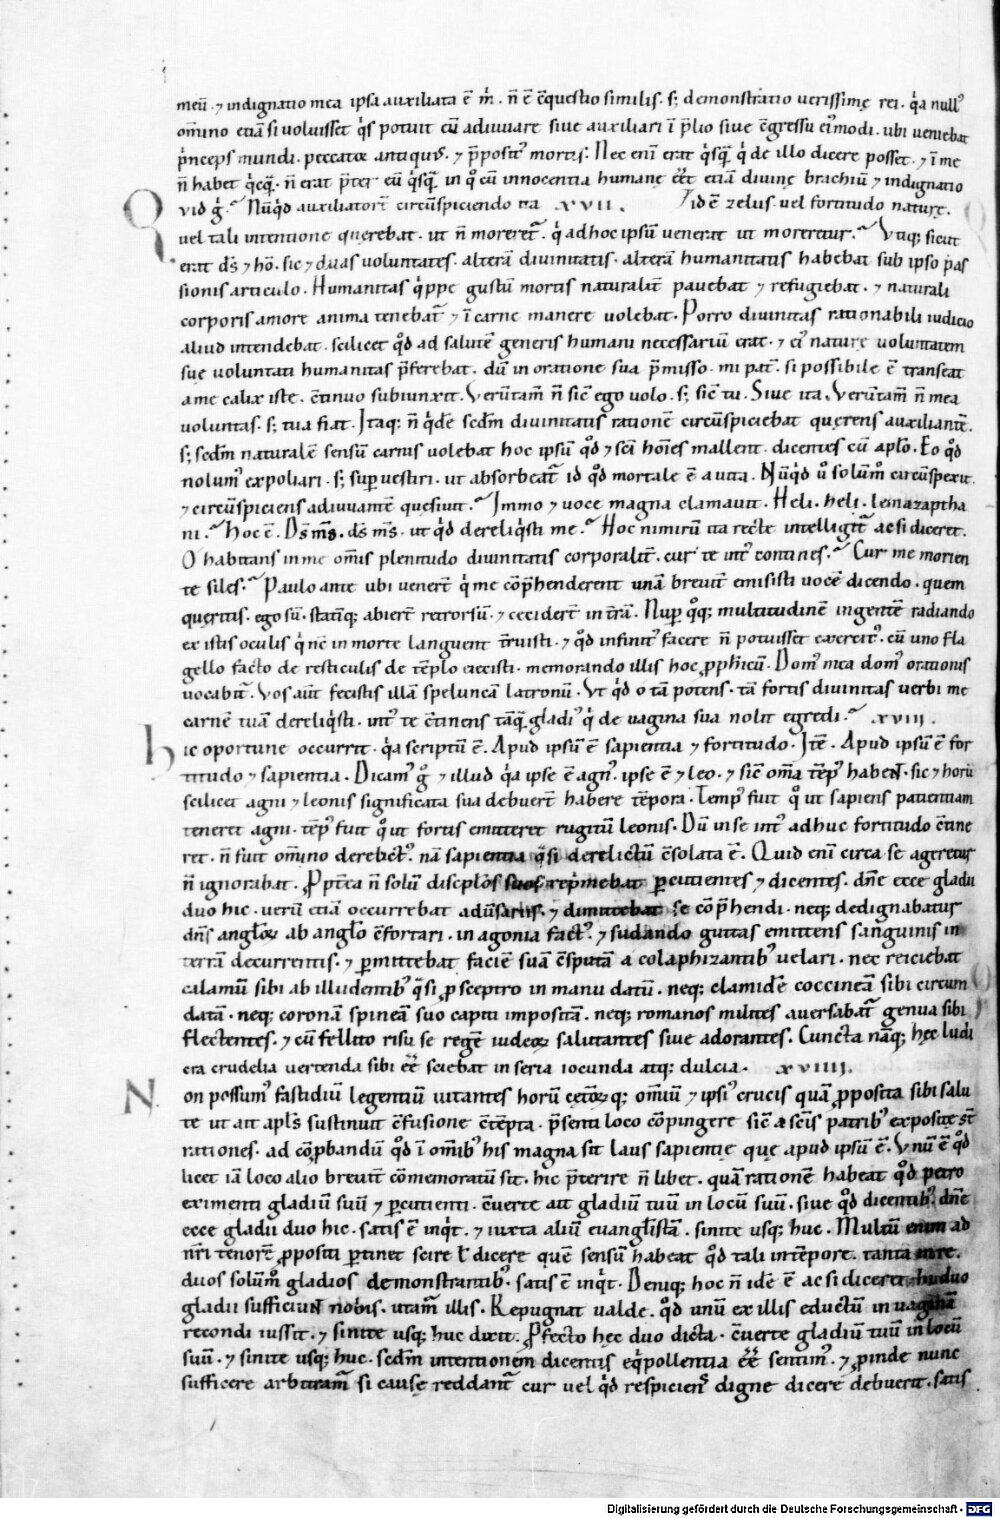 meū. ⁊ indignatio mea ipsa auxiliata ē m̄. n̄ ē c̄questio similis. s; demonstratio uerissimę rei. q̇a null᷒
om̄ino etiā si uoluisset q̇s potuit eū adiuuare siue auxiliari ī p̄lio siue c̄gressu ei᷒modi. ubi ueniebat
ṗnceps mundi. peccatoꝝ antiquis. ⁊ p̄posit᷒ mortis. Nec enī erat q̇sq̄ q̇ de illo dicere posset. ⁊ ī me
n̄ habet q̇cq̄. n̄ erat p̄ter eū q̇sq̄ in q̊ cū innocentia humanę eēt etiā diuinę brachiū ⁊ indignatio
id ē zelus. uel fortitudo naturę.
Qvid ḡ. Nūq̇d auxiliatorē circūspiciendo ita xvii.
uel tali intentione quęrebat. ut n̄ moreret᷑. q̇ ad hoc ipsū uenerat ut moreretur. Vtiq; sicut
erat d̄s ⁊ hō. sic ⁊ duas uoluntates. alterā diuinitatis. alterā humanitatis habebat sub ipso pas
sionis articulo. Humanitas q̇ppe gustū mortis naturalit̄ pauebat ⁊ refugiebat. ⁊ naturali
corporis amore anima tenebat᷑ ⁊ ī carne manere uolebat. Porro diuinitas rationabili iudicio
aliud intendebat. scilicet q̇d ad salutē generis humani necessariū erat. ⁊ ei᷒ naturę uoluntatem
suę uoluntati humanitas p̄ferebat. dū in oratione sua p̄misso. mi pat̄. si possibile ē transeat
a me calix iste. c̄tinuo subiunxit. Verūtam̄ n̄ sic̄ ego uolo. s; sic̄ tu. Siue ita. Verūtam̄ n̄ mea
uoluntas. s; tua fiat. Itaq; n̄ q̇de scd̄m diuinitatis rationē circūspiciebat quęrens auxiliantē.
s; scd̄m naturalē sensū carnis uolebat hoc ipsū q̇d ⁊ sc̄i hoīes mallent. dicentes cū aplō. Eo q̇d
nolum᷒ expoliari. s; sup̄ uestiri. ut absorbeat᷑ id q̇d mortale ē a uita. Nūq̇d ů solum̄ circūspexit
⁊ circūspiciens adiuuantē quęsiuit. Immo ⁊ uoce magna clamauit. Heli. heli. lemazaptha
ni. Hoc ē. D̄s m̄s. d̄s m̄s. ut q̇d dereliq̇sti me. Hoc nimirū ita recte intelligit᷑ ac si diceret.
O habitans in me om̄is plenitudo diuinitatis corporalit̄. cur te int᷒ contines. Cur me morien
te siles. Paulo ante ubi uenert̄ q̇ me cōp̄henderent unā breuit̄ emisisti uocē dicendo. quem
quęritis. ego sū. statīq; abiert̄ retrorsū. ⁊ cecidert̄ in t̄rā. Nup̄ q̊q; multitudinē ingentē radiando
ex istis oculis q̇ nc̄ in morte languent t̄ruisti. ⁊ q̇d infinit᷒ facere n̄ potuisset exercit᷒. cū uno fla
gello facto de resticulis de tēplo eiecisti. memorando illis hoc ꝓph̄icū. Dom᷒ mea dom᷒ orationis
uocabit᷑. Vos aūt fecistis illā speluncā latronū. Vt q̇d o tā potens. tā fortis diuinitas uerbi me
carnē tuā dereliq̇sti. int᷒ te c̄tinens tāq̄ gladi᷒ q̇ de uagina sua nolit egredi. xviii.
Hic oportune occurrit. q̇a scriptū ē. Apud ipsū ē sapientia ⁊ fortitudo. Itē. Apud ipsū ē for
titudo ⁊ sapientia. Dicam᷒ g̊ ⁊ illud q̇a ipse ē agn᷒. ipse ē ⁊ leo. ⁊ sic̄ om̄a tēp᷒ habent. sic ⁊ horū
scilicet agni ⁊ leonis significata sua debuert̄ habere tēpora. Temp᷒ fuit q̊ ut sapiens patientiam
teneret agni. tēp᷒ fuit q̊ ut fortis emitteret rugitū leonis. Dū in se int᷒ adhuc fortitudo c̄tine
ret. n̄ fuit om̄ino derelict᷒. nā sapientia q̄si derelictū c̄solata ē. Quid enī circa se ageretur
n̄ ignorabat. Propt̄ea n̄ solū discplōs suos reṗmebat ꝑcutientes ⁊ dicentes. dn̄e ecce gladii
duo hic. uerū etiā occurrebat adūsariis. ⁊ dimittebat se cōp̄hendi. neq; dedignabatur
dn̄s anglōꝝ ab anglō c̄fortari. in agonia fact᷒. ⁊ sudando guttas emittens sanguinis in
terrā decurrentis. ⁊ ꝑmittebat faciē suā c̄sputā a colaphizantib᷒ uelari. nec reiciebat
calamū sibi ab illudentib᷒ q̄si ꝓ sceptro in manu datū. neq; clamidē coccineā sibi circum
datā. neq; coronā spineā suo capiti impositā. neq; romanos milites auersabat᷑ genua sibi
flectentes. ⁊ cū fellito risu se regē iudeoꝝ salutantes siue adorantes. Cuncta nāq; hęc ludi
cra crudelia uertenda sibi eē sciebat in seria iocunda atq; dulcia. xviiii.
Non possum᷒ fastidiū legentiū uitantes horū cęt̄oꝝq; omiū ⁊ ipsi᷒ crucis quā ꝓposita sibi salu
te ut ait apl̄s sustinuit c̄fusione c̄tēpta. p̄senti loco cōpingere sic̄ a sc̄is patrib᷒ expositę st̄
rationes. ad cōꝓbandū q̇d ī om̄ib᷒ his magna sit laus sapientię quę apud ipsū ē. Vnū ē q̇d
licet iā loco alio breuit̄ cōmemoratū sit. hic p̄terire n̄ libet. quā rationē habeat q̇d petro
eximenti gladiū suū ⁊ ꝑcutienti. c̄uerte ait gladiū tuū in locū suū. siue q̇d dicentib᷒. dn̄e
ecce gladii duo hic. satis ē inq̇t. ⁊ iuxta aliū euangl̄istā. sinite usq; huc. Multū enim ad
nr̄i tenorē ꝓpositi ꝑtinet scire ł dicere quē sensū habeat q̇d tali in tēpore. tanta in re.
duos solum̄ gladios demonstrantib᷒. satis ē inq̇t. Deniq; hoc n̄ idē ē ac si diceret. hi duo
gladii sufficiunt nobis. utam̄ illis. Repugnat ualde. q̇d unū ex illis eductū in uaginā
recondi iussit. ⁊ sinite usq; huc dixit. Ꝓfecto hęc duo dicta. c̄uerte gladiū tuū in locū
suū. ⁊ sinite usq; huc. scd̄m intentionem dicentis eq̇pollentia eē sentim᷒. ⁊ ꝓinde nunc
sufficere arbitram̄ si causę reddant᷑ cur uel q̇d respiciens digne dicere debuerit. satis
Digitalisierung gefördert durch die Deutsche Forschungsgemeinschaft - DFG